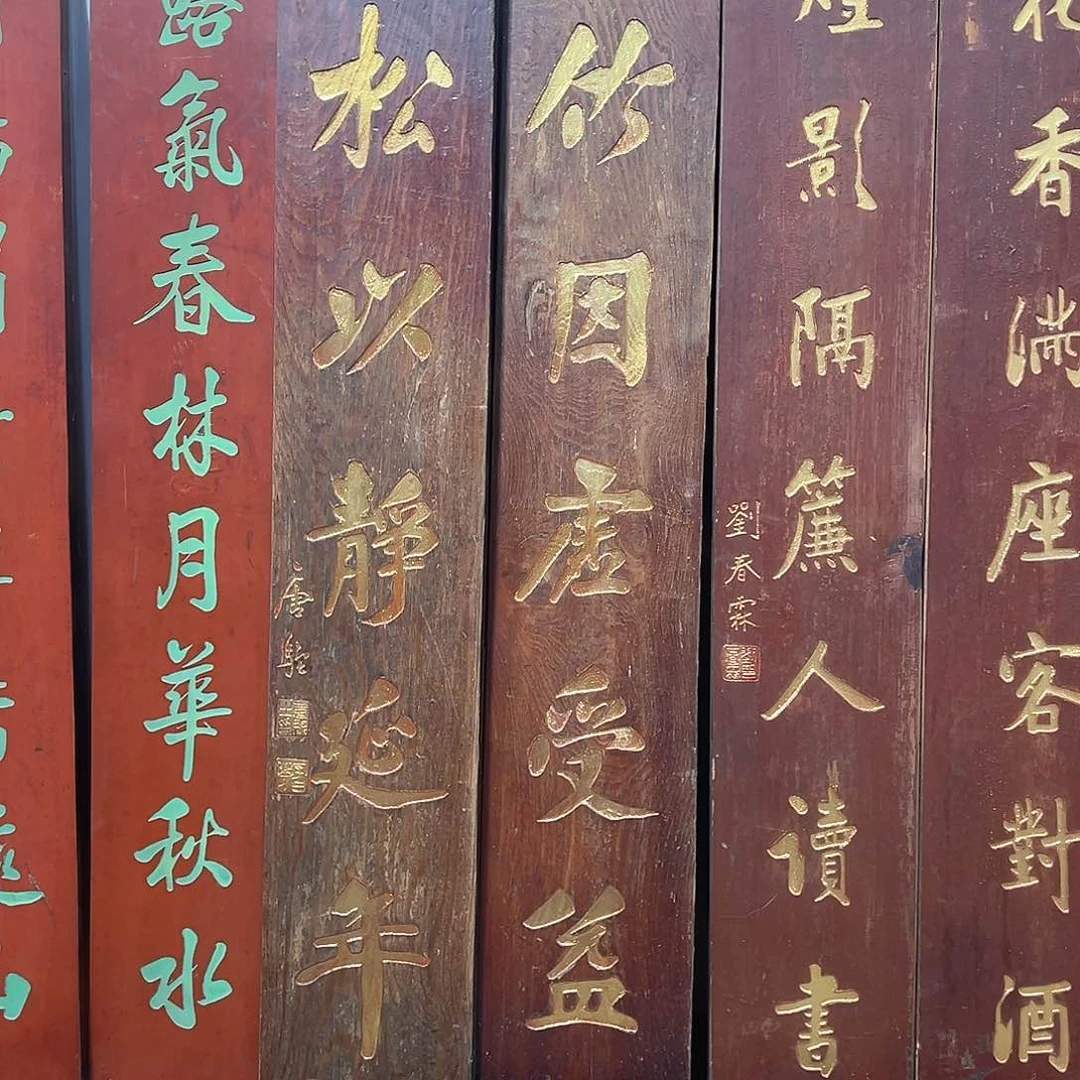 香滿座客對酒
影隔簾人讀書
劉春霖
竹因虛受益
松以靜延年
唐駝
露氣春林月華秋水